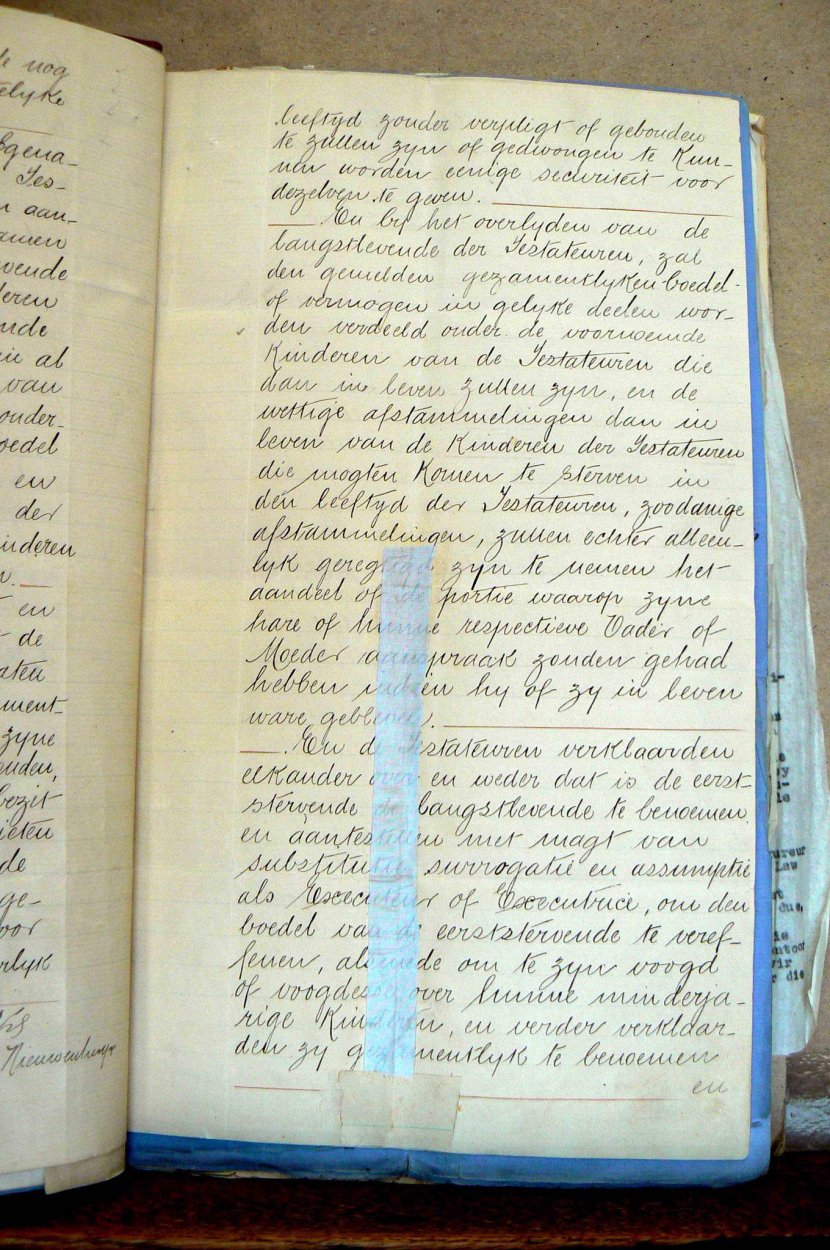 te nog
elyke
gena-
Tes-
aan-
amen
vende
deren
nde
al
van
onder-
oedel
en
der
inderen
en
de
aten
ment-
zyne
enden,
bezit
ieten
de
ge-
oor
erlyk
Nieuwenhuys
leeftyd zonder verpligt of gebonden
te zullen zyn of gedwongen te kun-
nen worden eenige securiteit voor
dezelven te geven.
En by het overlyden van de
langstlevende der Testateuren, zal
den gemelden gezamentlyken boedel
of vermogen in gelyke deelen wor-
den verdeeld onder de voornoemde
Kinderen van de Testateuren die
dan in leven zullen zyn, en de
wettige afstammelingen dan in
leven van de Kinderen der Testateuren
die mogten komen te sterven in
den leeftyd der Testateuren, zoodanige
afstammelingen, zullen echter alleen-
lyk geregtigd zyn te nemen het
aandeel of de portie waarop zyne
hare of hunne respectieve Vader of
Moeder aanspraak zouden gehad
hebben indien hy of zy in leven
ware gebleven.
En de Testateuren verklaarden
elkander over en weder dat is de eerst-
stervende de langstlevende te benoemen
en aantestellen met magt van
substitutie surrogatie en assumptie
als Executeur of Executrice, om den
boedel van de eerststervende te veref-
fenen, alsmede om te zyn voogd
of voogdesse over hunne minderja-
rige Kinderen, en verder verklaar-
den zy gezamentlyk te benoemen
en